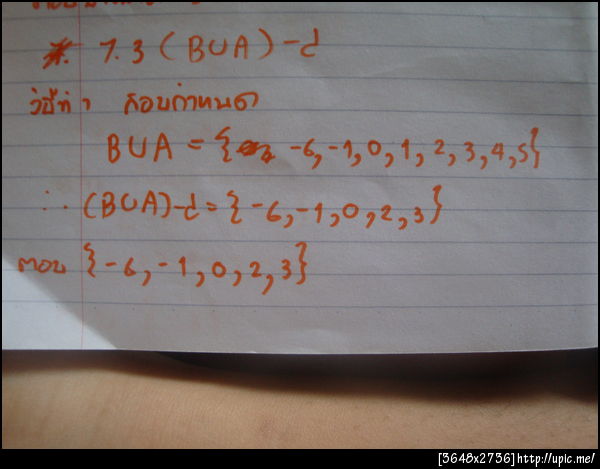 7.3 (B∪A)-d
วิธีทำ
B∪A = { -6,-1,0,1,2,3,4,5}
∴ (B∪A)-d = {-6,-1,0,2,3}
ตอบ {-6,-1,0,2,3}
[3648x2736]http://upic.me/